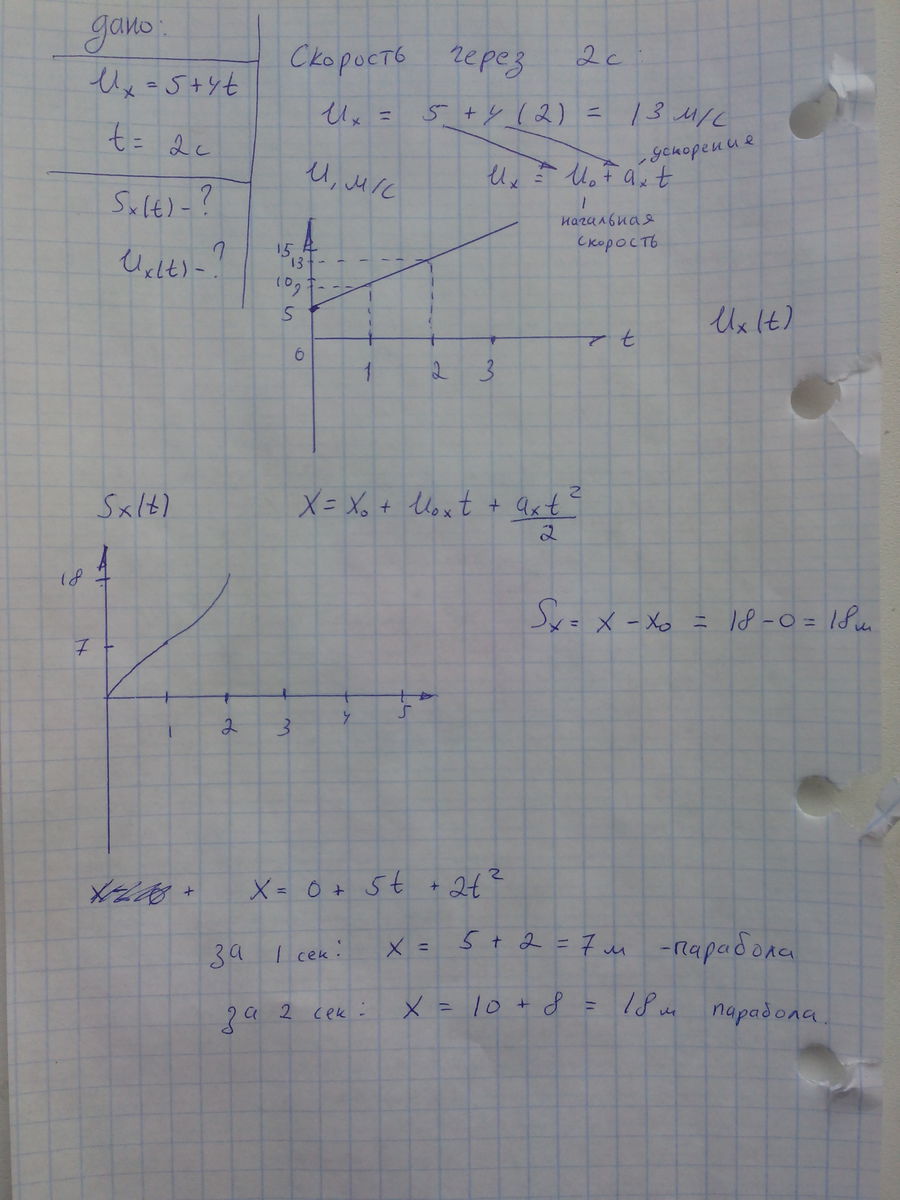 дано:
υx = 5+4t
t = 2с
Sx(t) - ?
υx(t) - ?
Скорость через 2с:
υx = 5 + 4(2) = 13 м/с
υx = υ0 + axt
ускорения
начальная
скорость
υ, м/с
15
13
10
9
5
0
1 2 3
t
υx(t)
Sx(t)
X = X0 + υ0xt + axt²/2
18
7
1 2 3 4 5
Sx = x - x0 = 18 - 0 = 18м
+ X = 0 + 5t + 2t²
за 1 сек: X = 5 + 2 = 7м - парабола
за 2 сек: X = 10 + 8 = 18м парабола.